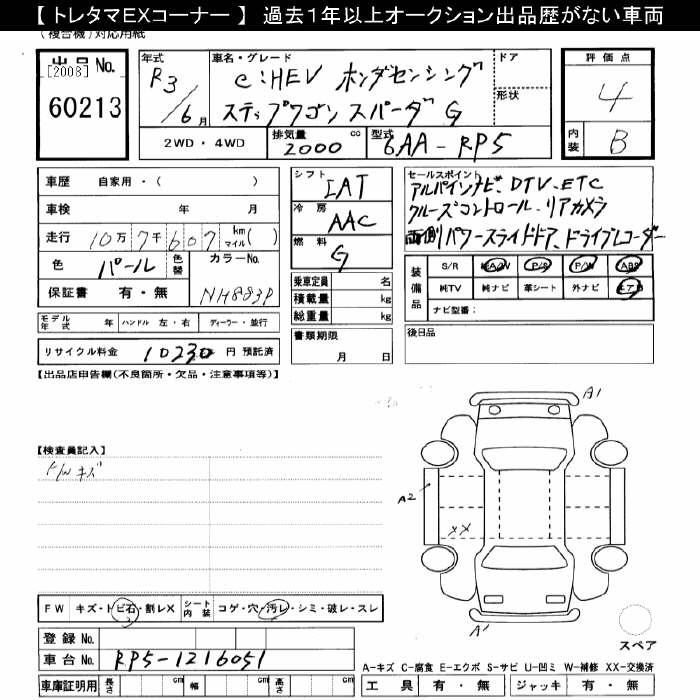 【 トレタマＥＸコーナー 】 過去１年以上オークション出品歴がない車両
(複合機)対応用紙
出品 No.
[2008]
60213
年式
R3
/6 月
車名・グレード
e:HEV ホンダセンシング
ステップワゴン スパーダ G
ドア
形状
評価点
4
内装
B
2WD ・ 4WD
排気量
2000 cc
型式
6AA-RP5
車歴 自家用・( )
車検 年 月
走行 10万7千607 km マイル( )
色 パール 色替 カラーNo.
保証書 有・無 NH883P
モデル年式 年 ハンドル 左・右 ディーラー・並行
リサイクル料金 10230 円 預託済
シフト
IAT
冷房
AAC
燃料
G
乗車定員 名
積載量 kg
総重量 kg
書類期限
月 日
セールスポイント
アルパインナビ、DTV、ETC
クルーズコントロール、リアカメラ
両側パワースライドドア、ドライブレコーダー
装備品
S/R 純A/V P/S P/W ABS
純TV 純ナビ 革シート 外ナビ エアB
ナビ型番:
後日品
【出品店申告欄(不良箇所・欠品・注意事項等)】
【検査員記入】
F/W キズ
A1
A2
XX
A1
スペア
FW キズ・トビ石・割レX シート内装 コゲ・穴・汚レ・シミ・破レ・スレ
登録 No.
車台 No. RP5-1216051
車庫証明用 長さ cm 幅 cm 高さ cm
A-キズ C-腐食 E-エクボ S-サビ U-凹ミ W-補修 XX-交換済
工具 有・無 ジャッキ 有・無